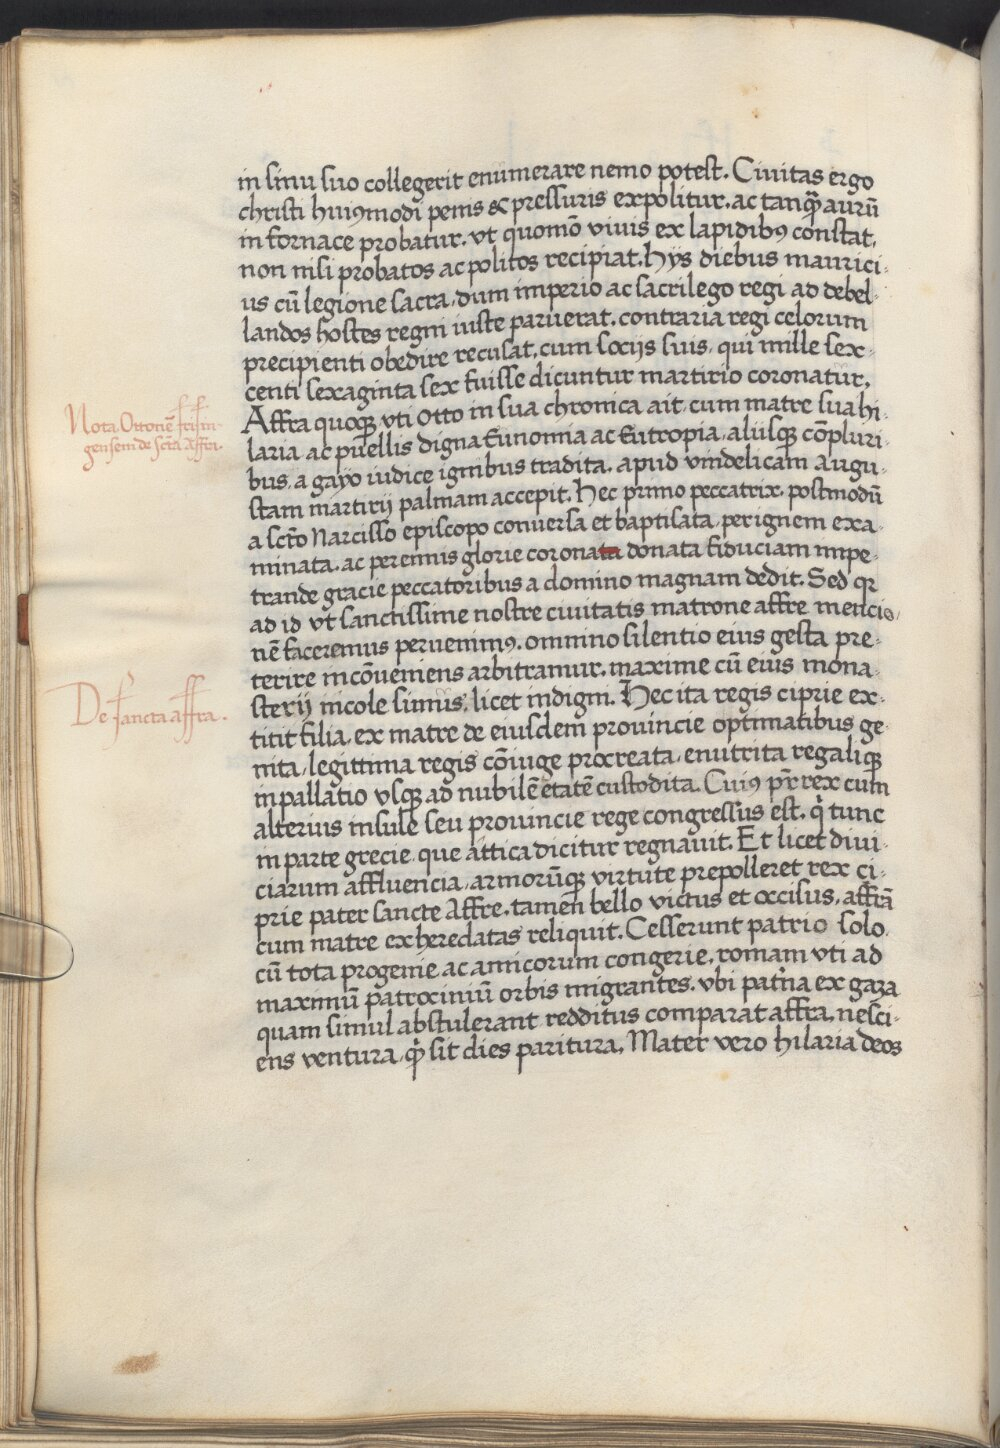 in sinu suo collegerit enumerare nemo potest. Ciuitas ergo
christi huiꝰmodi penis & pressuris expolitur. ac tanq̃ aurũ
in fornace probatur. vt quomõ viuis ex lapidibꝰ constat,
non nisi probatos ac politos recipiat. Hys diebus maurici-
us cũ legione sacra, dum imperio ac sacrilego regi ad debel-
landos hostes regni iuste paruerat, contraria regi celorum
precipienti obedire recusat, cum socijs suis, qui mille sex-
centi sexaginta sex fuisse dicuntur martirio coronatur,
Nota Ottonẽ frisin-
gensem de scta Affra.
Affra quoqꝫ vti Otto in sua chronica ait, cum matre sua hi-
laria ac puellis digna Eunomia ac Eutropia, aliisqꝫ cõpluri-
bus, a gayo iudice ignibus tradita, apud vindelicam Augu-
stam martirij palmam accepit. Hec primo peccatrix, postmodũ
a scto Narcisso episcopo conuersa et baptisata, per ignem exa-
minata, ac perennis glorie coronata donata fiduciam impe-
trande gracie peccatoribus a domino magnam dedit. Sed qr
ad id vt sanctissime nostre ciuitatis matrone affre mencio-
nẽ faceremus peruenimꝰ, omnino silentio eius gesta pre-
terire incõueniens arbitramur, maxime cũ eius mona-
De sancta affra.
sterij incole simus, licet indigni. Hec ita regis ciprie ex-
titit filia, ex matre de eiusdem prouincie optimatibus ge-
nita, legittima regis cõiuge procreata, enutrita regaliqꝫ
in pallatio vsqꝫ ad nubilẽ etatẽ custodita. Cuiꝰ pr̃ rex cum
alterius insule seu prouincie rege congressus est, q̇ tunc
in parte grecie, que attica dicitur regnauit. Et licet diui-
ciarum affluencia, armorũqꝫ virtute prepolleret rex ci-
prie pater sancte Affre, tamen bello victus et occisus, affrã
cum matre exheredatas reliquit. Cesserunt patrio solo
cũ tota progenie ac amicorum congerie, romam vti ad
maximũ patrociniũ orbis migrantes. vbi pat'na ex gaza
quam simul abstulerant redditus comparat affra, nesci-
ens ventura, q̇ sit dies paritura, Mater vero hilaria deos